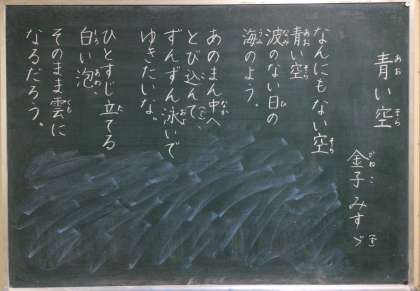 青い空
金子 みすゞ
なんにもない空
青い空
波のない日の
海のよう。
あのまん中へ
とび込んで、
ずんずん泳いで
ゆきたいな。
ひとすじ立てる
白い泡、
そのまま雲に
なるだろう。